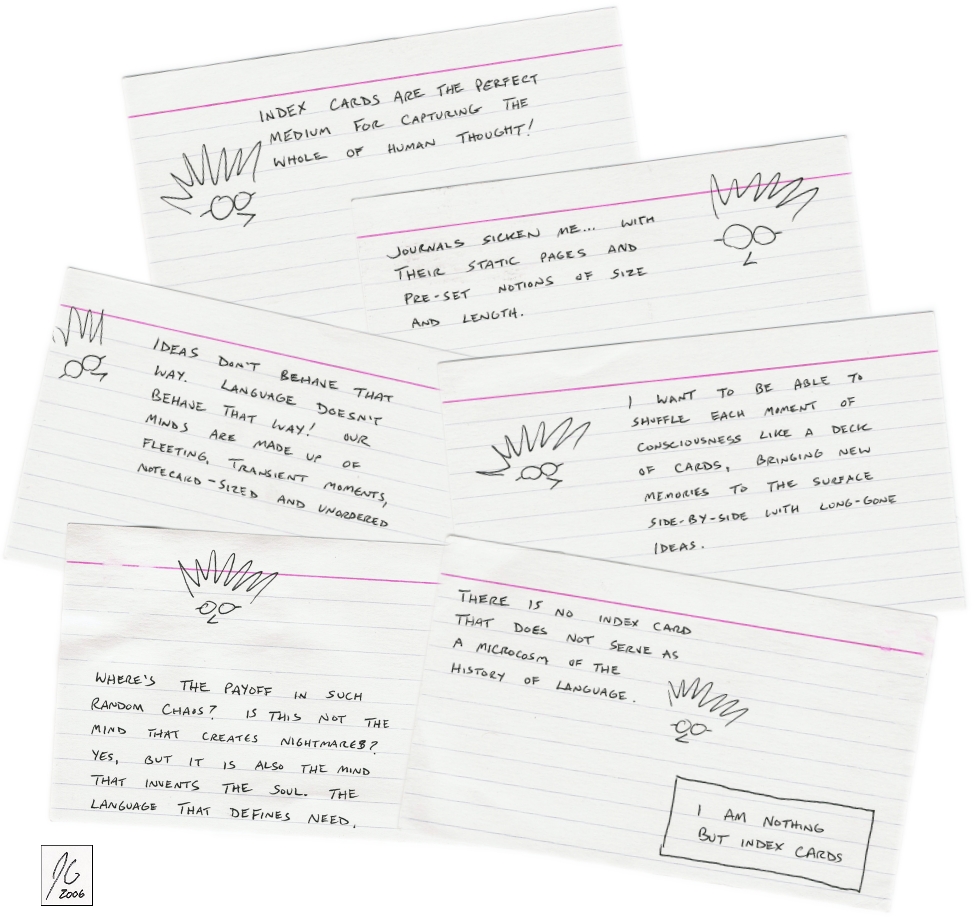 INDEX CARDS ARE THE PERFECT
MEDIUM FOR CAPTURING THE
WHOLE OF HUMAN THOUGHT!
JOURNALS SICKEN ME... WITH
THEIR STATIC PAGES AND
PRE-SET NOTIONS OF SIZE
AND LENGTH.
IDEAS DON'T BEHAVE THAT
WAY. LANGUAGE DOESN'T
BEHAVE THAT WAY! OUR
MINDS ARE MADE UP OF
FLEETING, TRANSIENT MOMENTS,
NOTECARD-SIZED AND UNORDERED
I WANT TO BE ABLE TO
SHUFFLE EACH MOMENT OF
CONSCIOUSNESS LIKE A DECK
OF CARDS, BRINGING NEW
MEMORIES TO THE SURFACE
SIDE-BY-SIDE WITH LONG-GONE
IDEAS.
WHERE'S THE PAYOFF IN SUCH
RANDOM CHAOS? IS THIS NOT THE
MIND THAT CREATES NIGHTMARES?
YES, BUT IT IS ALSO THE MIND
THAT INVENTS THE SOUL. THE
LANGUAGE THAT DEFINES NEED.
THERE IS NO INDEX CARD
THAT DOES NOT SERVE AS
A MICROCOSM OF THE
HISTORY OF LANGUAGE.
I AM NOTHING
BUT INDEX CARDS
JG
2006